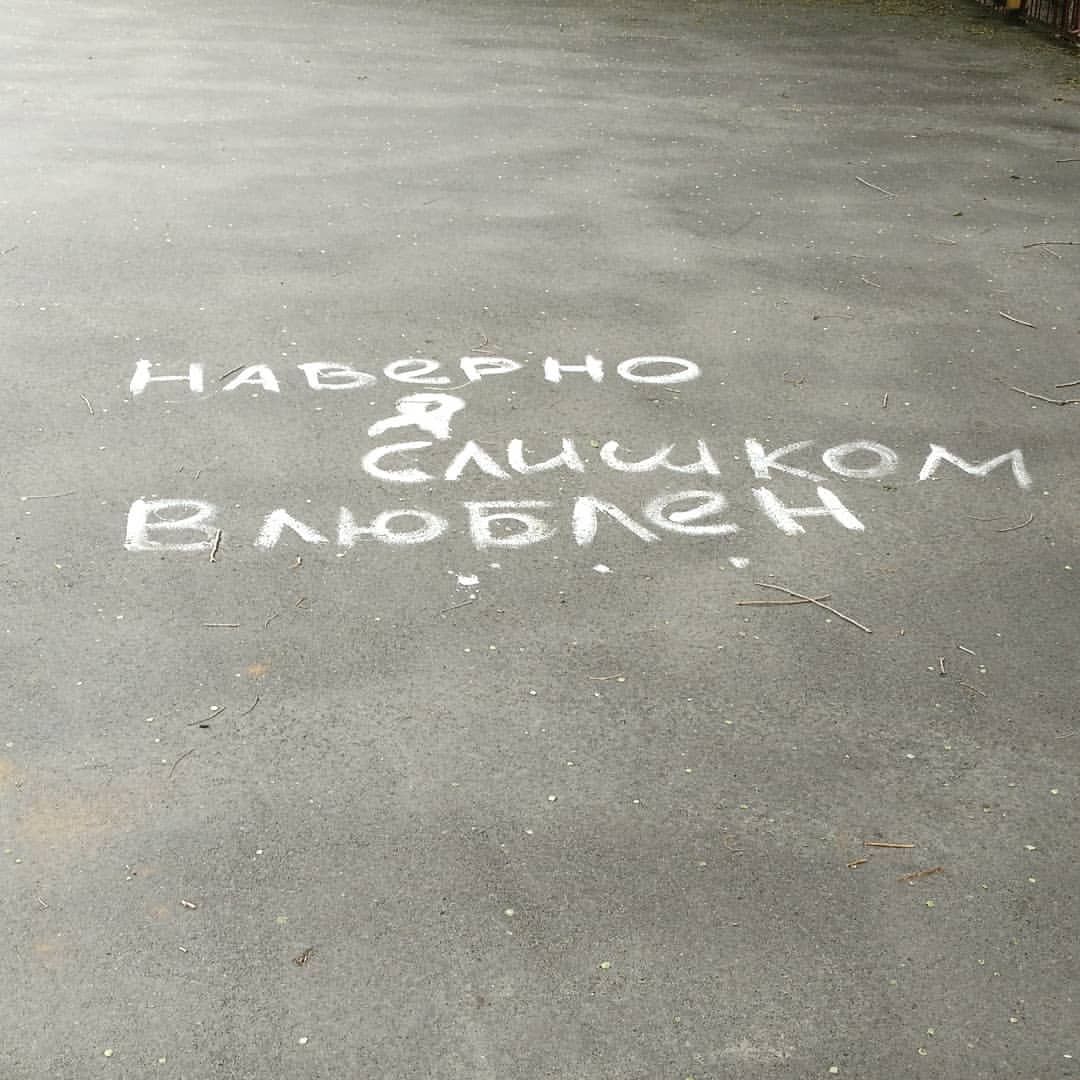 НАВеРНО
Я
СЛИШКОМ
ВЛЮБЛеН